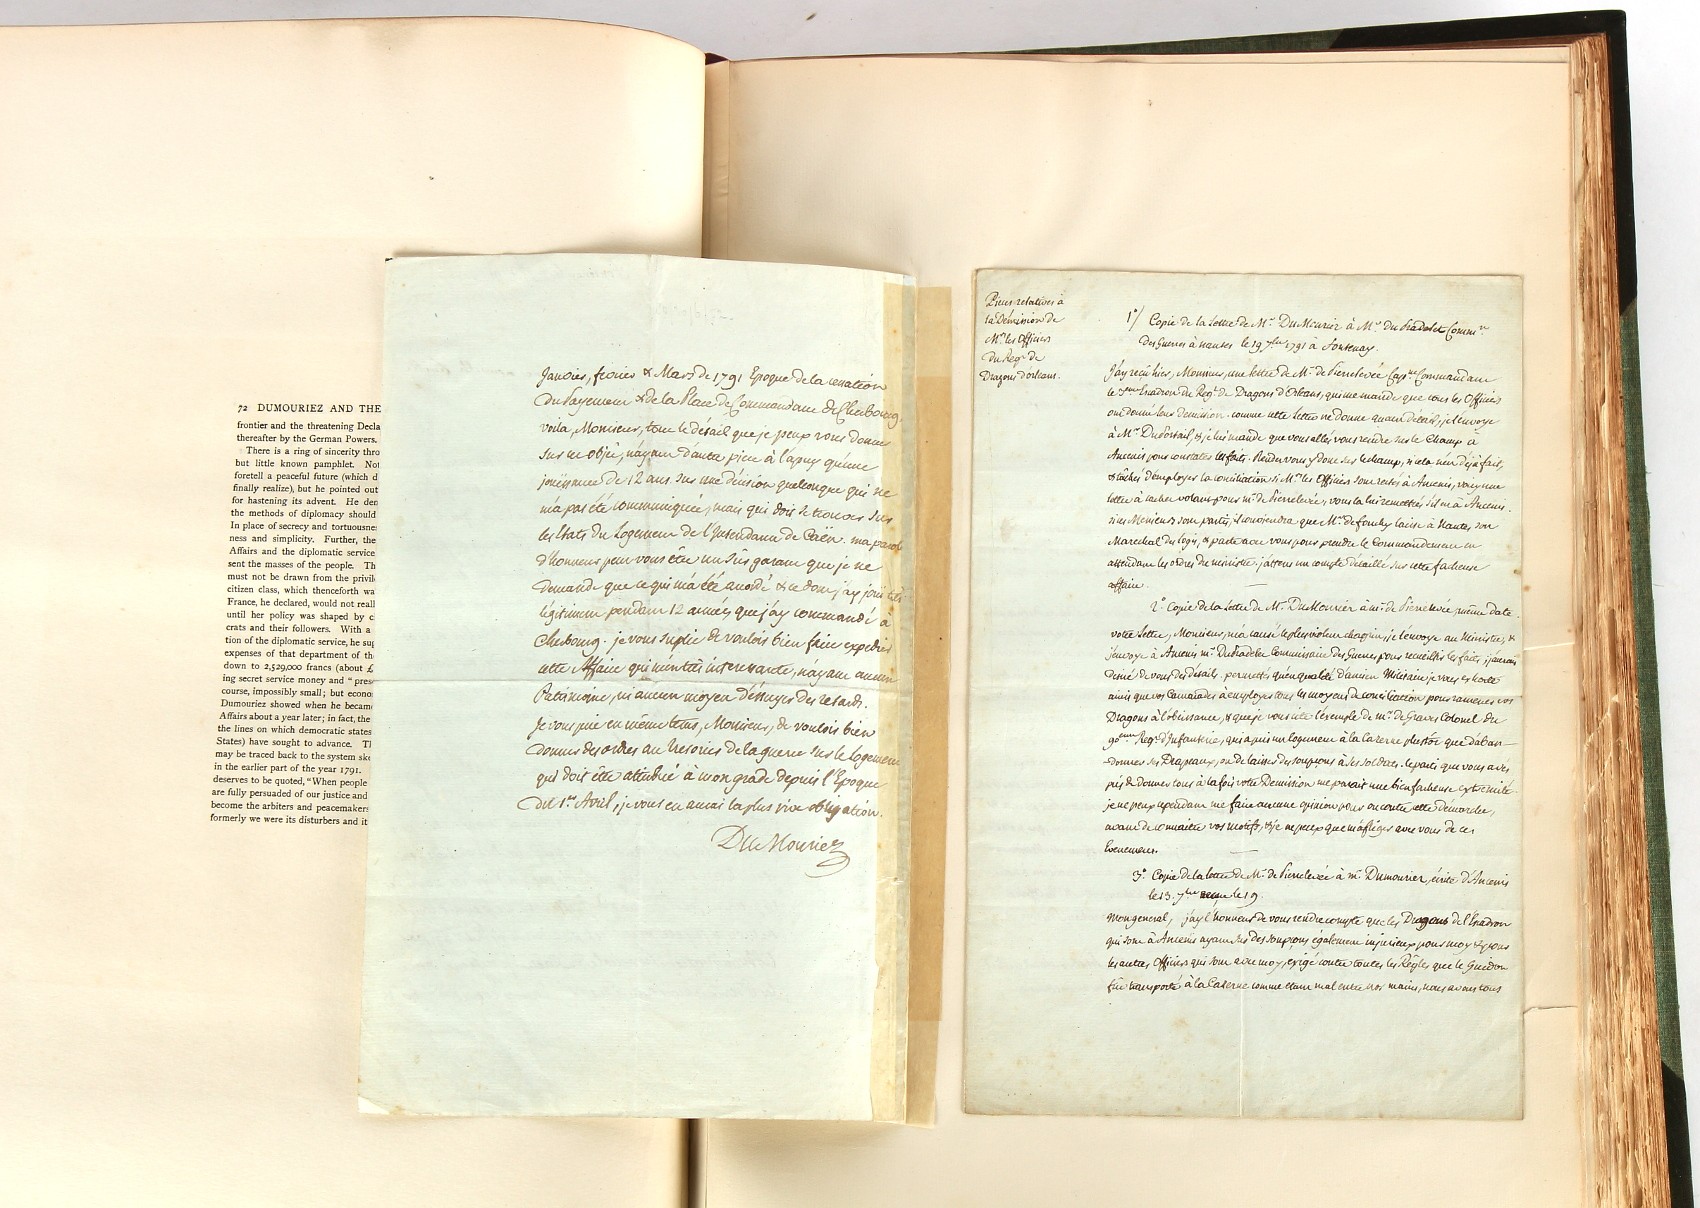 72 DUMOURIEZ AND THE
frontier and the threatening Decla
thereafter by the German Powers.
There is a ring of sincerity thro
but little known pamphlet. Not
foretell a peaceful future (which d
finally realize), but he pointed out
for hastening its advent. He den
the methods of diplomacy should
In place of secrecy and tortuousne
ness and simplicity. Further, the
Affairs and the diplomatic service
sent the masses of the people. Th
must not be drawn from the privil
citizen class, which thenceforth wa
France, he declared, would not reall
until her policy was shaped by c
crats and their followers. With a
tion of the diplomatic service, he sug
expenses of that department of th
down to 2,529,000 francs (about £
ing secret service money and "pres
course, impossibly small; but econo
Dumouriez showed when he becam
Affairs about a year later; in fact, the
the lines on which democratic states
States) have sought to advance. Th
may be traced back to the system ske
in the earlier part of the year 1791.
deserves to be quoted, "When people
are fully persuaded of our justice and
become the arbiters and peacemakers
formerly we were its disturbers and it
Janvier, fevrier & Mars de 1791 Epoque de la cessation
du payement & de la Place de Commandant de Cherbourg.
voila, Monsieur, tout le détail que je peux vous donner
sur cet objet, n'ayant d'autre piece à l'apuy qu'une
jouissance de 12 ans sur une décision quelconque qui ne
m'a pas été communiquée, mais qui doit se trouver sur
les Etats du Logement de l'Intendance de Caën. ma parole
d'honneur peut vous être un sûr garant que je ne
demande que ce qui m'a été accordé & ce dont j'ay joui très
légitimement pendant 12 années que j'ay commandé à
Cherbourg. je vous suplie de vouloir bien faire expedier
cette Affaire qui m'est très interessante, n'ayant aucun
Patrimoine, ni aucun moyen d'éssuyer des retards.
Je vous prie en même tems, Monsieur, de vouloir bien
donner des ordres au tresorier de la guerre sur le logement
qui doit être attribué à mon grade depuis l'Epoque
du 1er Avril, je vous en aurai la plus vive obligation.
DuMouriez
Pieces relatives à
la Démission de
Mrs les Officiers
du Regt de
Dragons d'orleans.
1°/ Copie de la Lettre de Mr. DuMourier à Mr. du Pradelet Commre
des Guerres à Nantes le 19 7bre 1791 à Fontenay.
J'ay reçu hier, Monsieur, une lettre de Mr. de Pierrelevée Capne Commandant
le 3eme Escadron du Regt. de Dragons d'Orléans, qui me mande que tous les Officiers
ont donné leur démission. comme cette lettre ne donne aucun détail, je l'envoye
à Mr. Duportail, & je lui mande que vous allez vous rendre sur le Champ à
Ancenis pour constater les faits. Rendez vous y donc sur le champ, si cela n'est déjà fait,
& tâchez d'employer la conciliation si Mrs les Officiers sont restés à Ancenis, voicy une
lettre à cachet volant pour mr. de Pierrelevée, vous la lui remettrés s'il est à Ancenis.
si ces Messieurs sont partis, il conviendra que Mr. de laisse à Nantes son
Marechal des logis, & parte avec vous pour prendre le Commandement en
attendant les ordres du ministre. j'attens un compte détaillé sur cette facheuse
affaire.
2°. Copie de la Lettre de Mr. DuMourier à mr. de Pierrelevée, même date.
votre lettre, Monsieur, m'a causé le plus violent chagrin, je l'envoye au Ministre, &
j'envoye à Ancenis mr. Commissaire des Guerres pour recueillir les faits. j'aurais
désiré de vous des détails. permettés qu'en qualité d'ancien Militaire je vous exhorte
ainsi que vos Camarades à employer tous les moyens de conciliation pour ramener vos
Dragons à l'obeissance, & que je vous cite l'exemple de mr. de Graves Colonel du
90eme Regt. d'Infanterie, qui a pris un logement à la Caserne plustôt que d'aban-
donner ses Drapeaux, ou de laisser des soupçons à ses soldats. le parti que vous avés
pris de donner tous à la fois votre Démission me parait une bien facheuse extremité.
je ne peux cependant me faire aucune opinion pour ou contre cette démarche,
avant de connaitre vos motifs, & je ne peux que m'affliger avec vous de ces
Evenemens.
3°. Copie de la lettre de Mr. de Pierrelevée à mr. Dumourier, écrite d'Ancenis
le 13. 7bre le 19.
Mon general, j'ay l'honneur de vous rendre compte que les Dragons de l'Escadron
qui sont à Ancenis ayant eu des soupçons également injurieux pour moy & pour
les autres Officiers qui sont avec moy, exigé contre toutes les Règles que le Guidon
fut transporté à la Caserne comme étant mal entre nos mains, nous avons tous